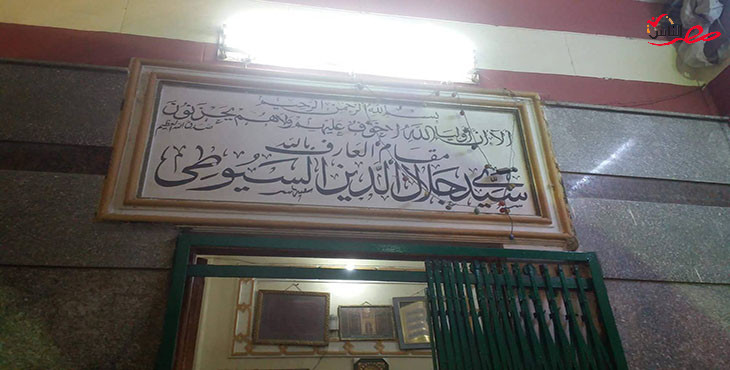 بسم الله الرحمن الرحيم
ألا إن أولياء الله لا خوف عليهم ولا هم يحزنون
صدق الله العظيم
مقام العارف بالله
سيدي جلال الدين السيوطي